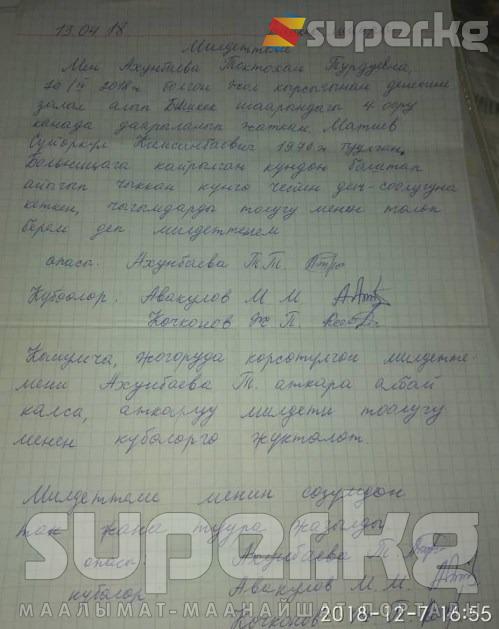 super.kg
13.04.18
Милдеттеме
Мен Ахунбаева Токтокан Турдуевна,
2018-ж болгон жол кырсыгынан денесине
залал алып Бишкек шаарындагы 4 оору
канада дааряланып жаткан Матиев
Суйоркул 1970-ж туулган,
Больницага кайрылган кундон баштап
айыгып чыккан кунго чейин ден-соолугуна
кеткен, чыгымдарды толугу менен толоп
берем деп милдеттенем
апасы: Ахунбаева Т.Т.
Кубоолор: Авакулов М М
Кочконов Ж. П.
Кошумча, жогоруда корсотулгон милдетте-
мени Ахунбаева Т. аткара албай
калса, аткаруу милдети толугу
менен куболорго жуктолот.
Милдеттеме менин созумдон
так жана туура жазылды
super.kg
апасы: Ахунбаева Т.
куболор Авакулов М. М.
МААЛЫМАТ-МААНАЙШАТ ПОРТАЛЫ
Кочконов
2018-12-7 16:55